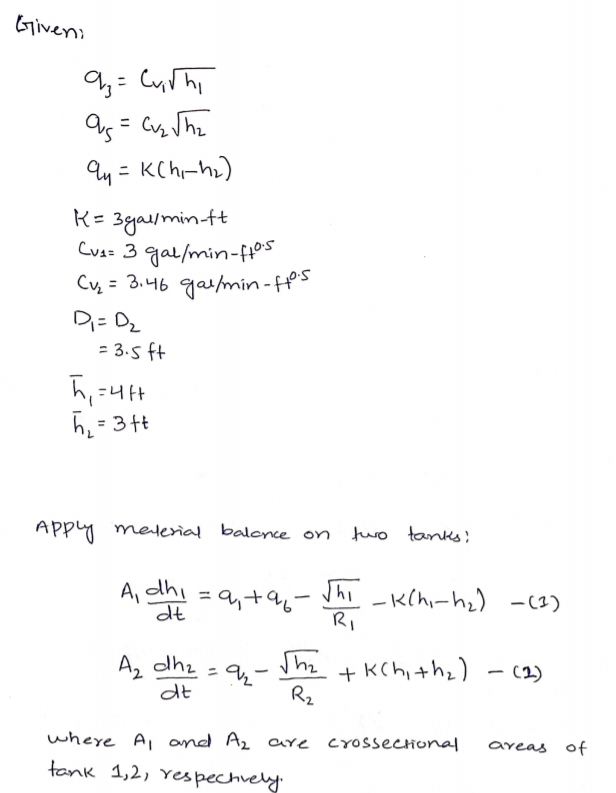 Given:
q₃ = Cv₁√h₁
q₅ = Cv₂√h₂
q₄ = K(h₁-h₂)
K = 3gal/min-ft
Cv1 = 3 gal/min-ft^0.5
Cv₂ = 3.46 gal/min-ft^0.5
D₁ = D₂
= 3.5 ft
h̅₁ = 4ft
h̅₂ = 3ft
Apply material balance on two tanks:
A₁ dh₁/dt = q₁+q₆ - √h₁/R₁ - K(h₁-h₂) -(1)
A₂ dh₂/dt = q₂ - √h₂/R₂ + K(h₁+h₂) - (2)
where A₁ and A₂ are crossectional areas of
tank 1,2, respectively.